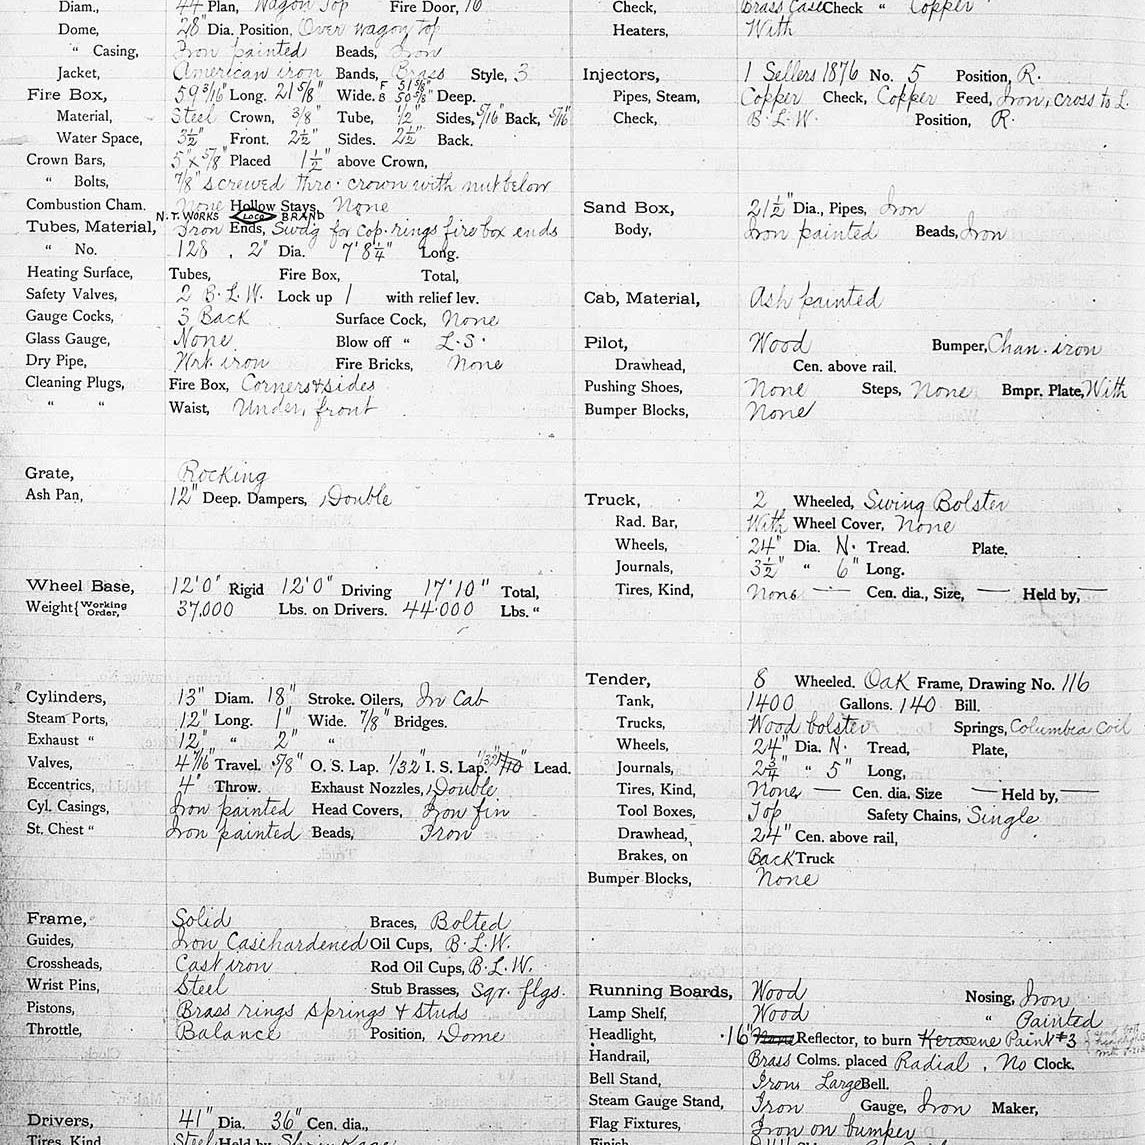 Diam., 44" Plan, Wagon Top Fire Door, 16
Dome, 28" Dia. Position, Over wagon top
" Casing, Iron painted Beads, Iron
Jacket, American iron Bands, Brass Style, 3
Fire Box, 59 3/16" Long. 21 5/8" Wide. F 51 5/8" B 50 5/8" Deep.
Material, Steel Crown, 3/8" Tube, 1/2" Sides, 5/16" Back, 5/16"
Water Space, 3½" Front. 2½" Sides. 2½" Back.
Crown Bars, 5" x 5/8" Placed 1½" above Crown,
" Bolts, 7/8" screwed thro. crown with nut below
Combustion Cham. None Hollow Stays, None
N.T. WORKS LOCO BRAND
Tubes, Material, Iron Ends, Swdg for cop. rings fire box ends
" No. 128 . 2" Dia. 7' 8¼" Long.
Heating Surface, Tubes, Fire Box, Total,
Safety Valves, 2 B.L.W. Lock up 1 with relief lev.
Gauge Cocks, 3 Back Surface Cock, None
Glass Gauge, None Blow off " L.S.
Dry Pipe, Wrt. iron Fire Bricks, None
Cleaning Plugs, Fire Box, Corners & sides
" " Waist, Under, front
Grate, Rocking
Ash Pan, 12" Deep. Dampers, Double
Wheel Base, 12' 0" Rigid 12' 0" Driving 17' 10" Total,
Weight { Working Order, 37,000 Lbs. on Drivers. 44,000 Lbs. "
Cylinders, 13" Diam. 18" Stroke. Oilers, In Cab
Steam Ports, 12" Long. 1" Wide. 7/8" Bridges.
Exhaust " 12" " 2" "
Valves, 4 7/16" Travel. 5/8" O. S. Lap. 1/32" I. S. Lap. 1/32" Lead.
Eccentrics, 4" Throw. Exhaust Nozzles, Double
Cyl. Casings, Iron painted Head Covers, Iron fin
St. Chest " Iron painted Beads, Iron
Frame, Solid Braces, Bolted
Guides, Iron Casehardened Oil Cups, B.L.W.
Crossheads, Cast iron Rod Oil Cups, B.L.W.
Wrist Pins, Steel Stub Brasses, Sqr. flgs.
Pistons, Brass rings springs & studs
Throttle, Balance Position, Dome
Drivers, 41" Dia. 36" Cen. dia.,
Tires, Kind Steel Held by Shrinkage
Check, Brass Case Check " Copper
Heaters, With
Injectors, 1 Sellers 1876 No. 5 Position, R.
Pipes, Steam, Copper Check, Copper Feed, Iron, cross to L.
Check, B.L.W. Position, R.
Sand Box, 21½" Dia., Pipes, Iron
Body, Iron painted Beads, Iron
Cab, Material, Ash painted
Pilot, Wood Bumper, Chan. iron
Drawhead, Cen. above rail.
Pushing Shoes, None Steps, None Bmpr. Plate, With
Bumper Blocks, None
Truck, 2 Wheeled, Swing Bolster
Rad. Bar, With Wheel Cover, None
Wheels, 24" Dia. N. Tread. Plate.
Journals, 3½" " 6" Long.
Tires, Kind, None — Cen. dia., Size, — Held by, —
Tender, 8 Wheeled. Oak Frame, Drawing No. 116
Tank, 1400 Gallons. 140 Bill.
Trucks, Wood bolster Springs, Columbia Coil
Wheels, 24" Dia. N. Tread, Plate,
Journals, 2¾" " 5" Long,
Tires, Kind, None, — Cen. dia. Size — Held by, —
Tool Boxes, Top Safety Chains, Single
Drawhead, 24" Cen. above rail,
Brakes, on Back Truck
Bumper Blocks, None
Running Boards, Wood Nosing, Iron
Lamp Shelf, Wood " Painted
Headlight, 16" None Reflector, to burn Kerosene Paint #3
Handrail, Brass Colms. placed Radial . No Clock.
Bell Stand, Iron Large Bell.
Steam Gauge Stand, Iron Gauge, Iron Maker,
Flag Fixtures, Iron on bumper
Finish,